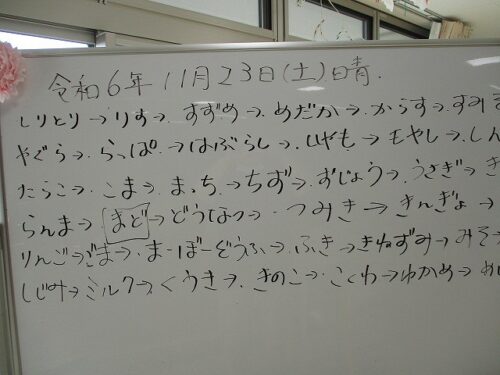 令和6年 11月23日(土)日晴.
しりとり→りす→すずめ→めだか→からす→すみ
やぐら→らっぱ→はぶらし→ししゃも→もやし→しん
たらこ→こま→まっち→ちず→ずじょう→うさぎ→き
らんま→まど→どうぶつ→つみき→きんぎょ→
りんご→ごま→まーぼーどうふ→ふき→きねずみ→みそ→
しじみ→ミルク→くうき→きのこ→こくわ→ゆかめ→め